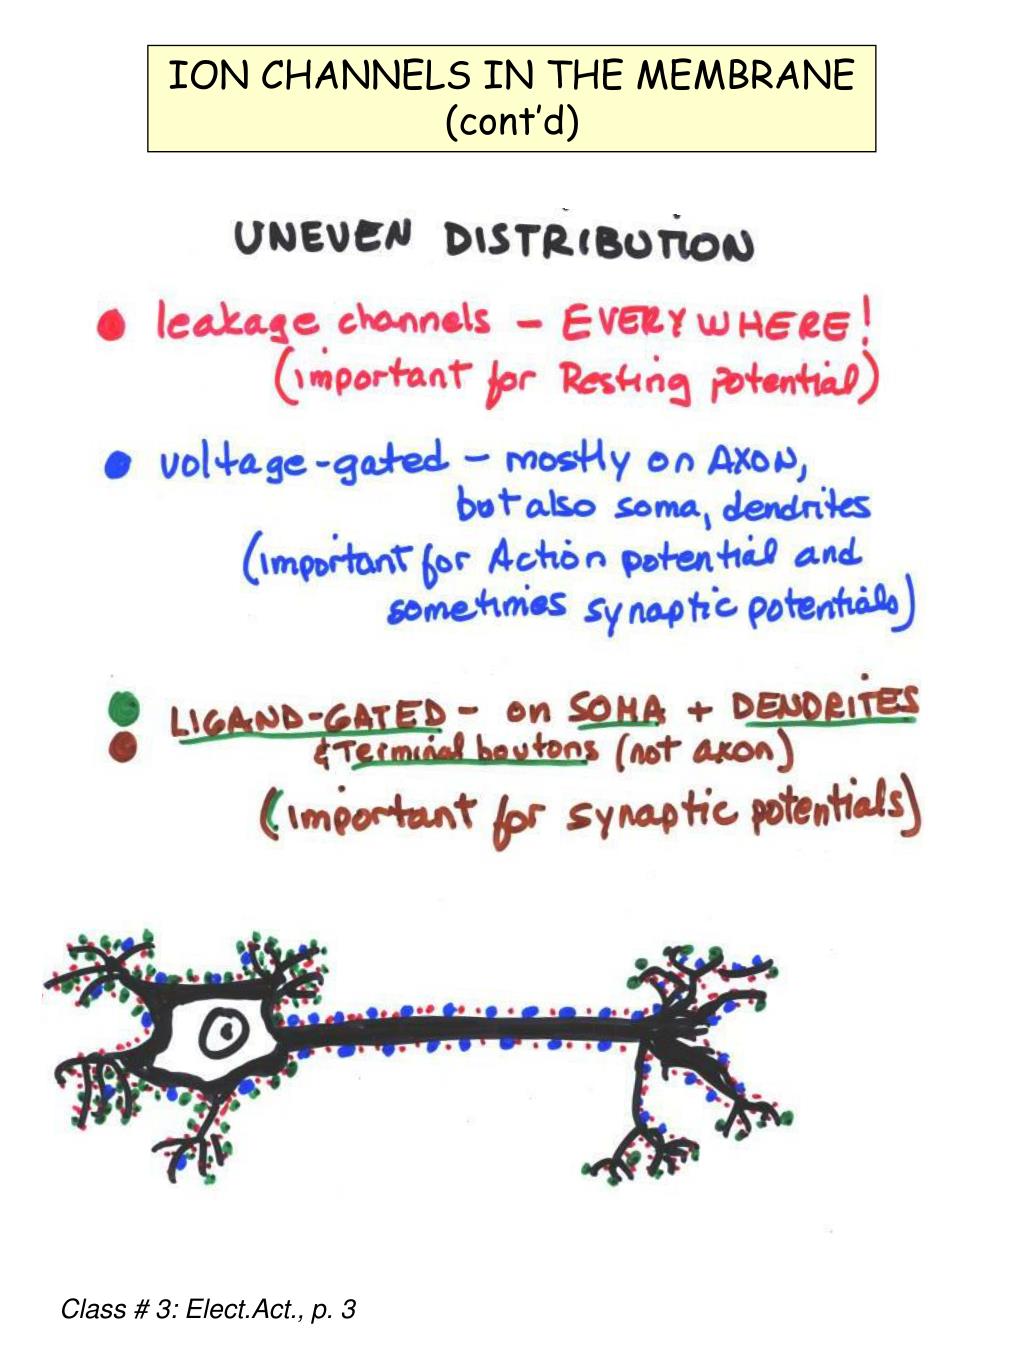 ION CHANNELS IN THE MEMBRANE
(cont'd)
UNEVEN DISTRIBUTION
leakage channels - EVERYWHERE!
(important for Resting potential)
voltage-gated - mostly on AXON,
but also soma, dendrites
(important for Action potential and
sometimes synaptic potentials)
LIGAND-GATED - on SOMA + DENDRITES
& Terminal boutons (not axon)
(important for synaptic potentials)
Class # 3: Elect.Act., p. 3